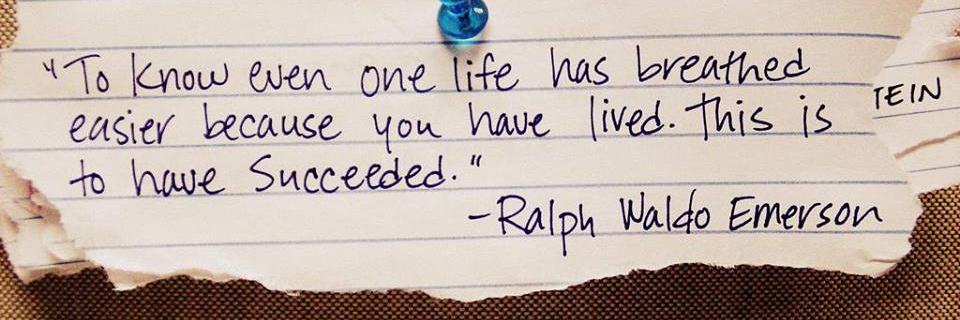 "To know even one life has breathed
easier because you have lived. This is
to have Succeeded."
-Ralph Waldo Emerson
TEIN